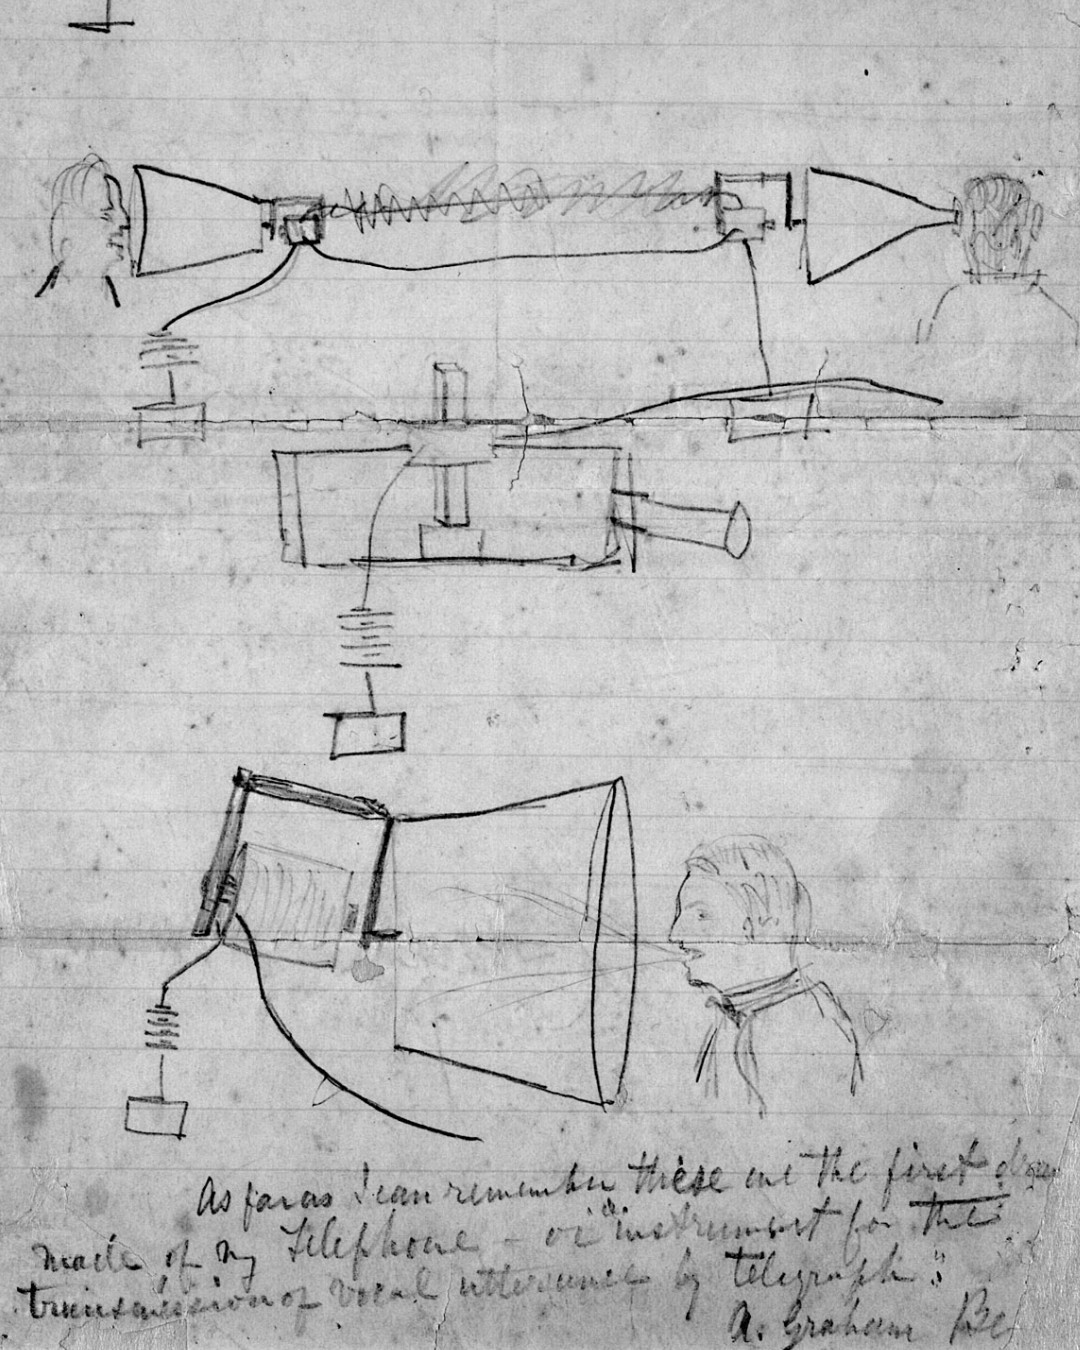 As far as I can remember these are the first draw
made of my telephone - or "instrument for the
transmission of vocal utterances by telegraph."
A. Graham Be